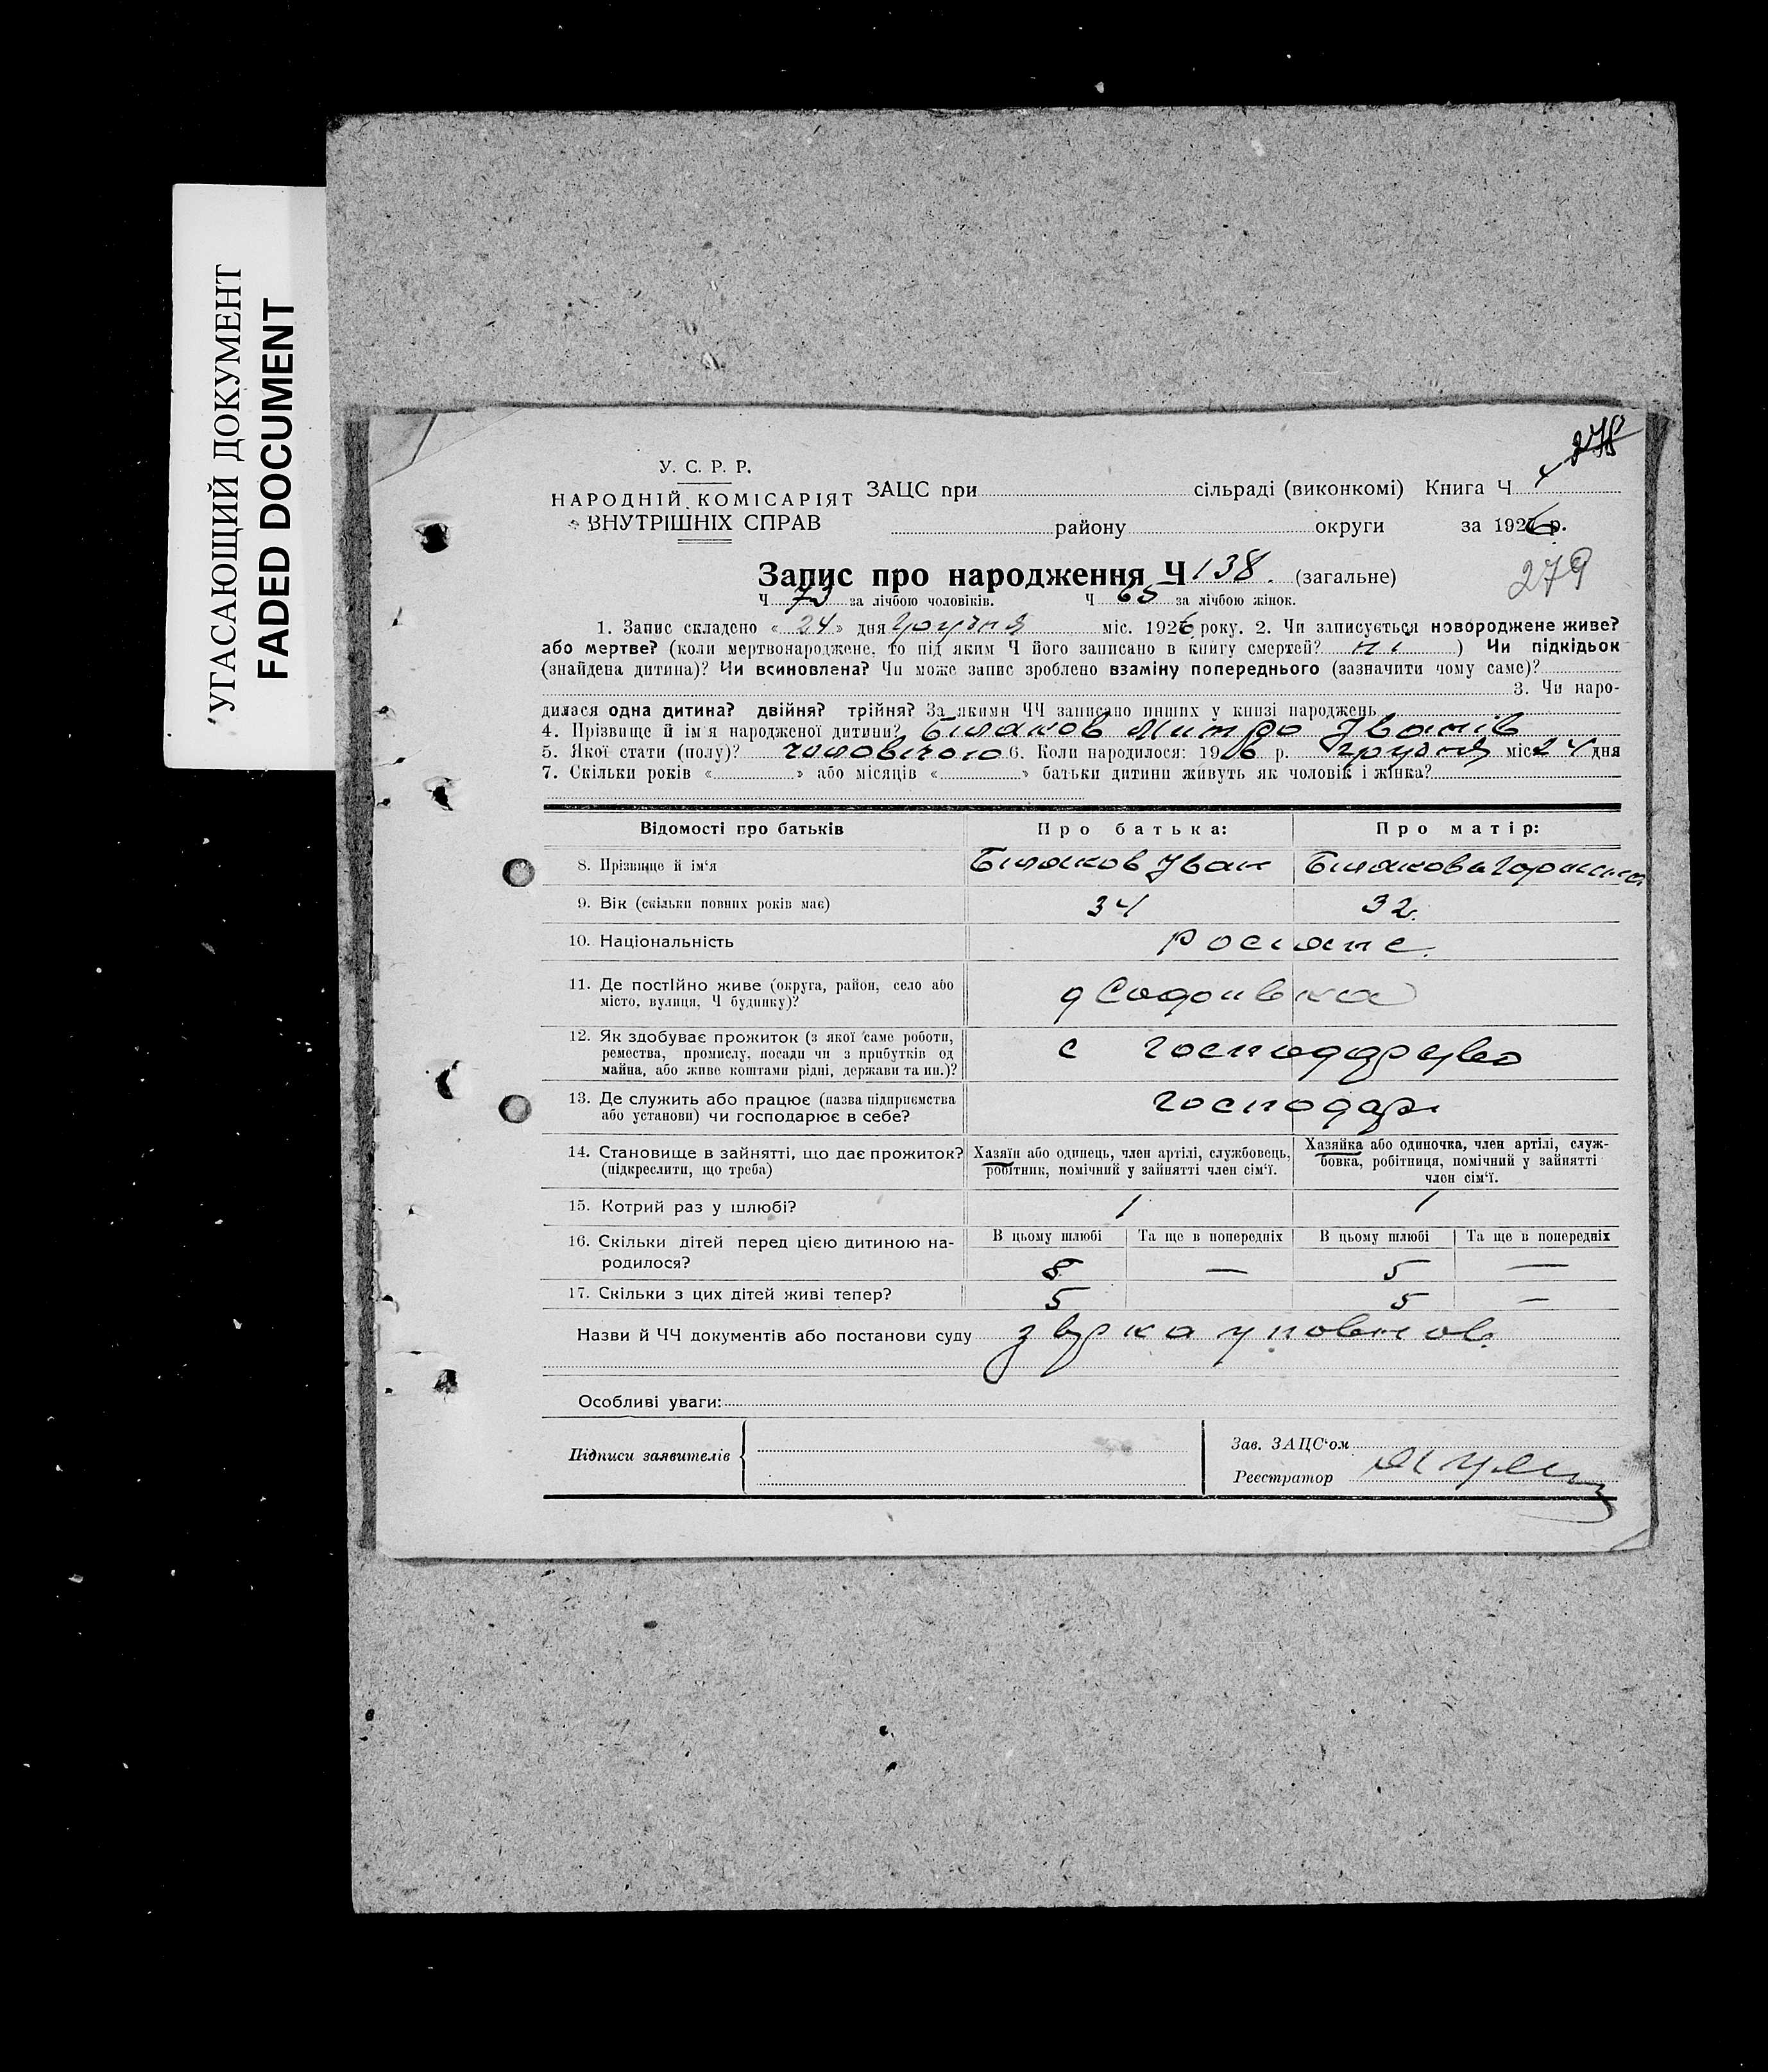 УГАСАЮЩИЙ ДОКУМЕНТ
FADED DOCUMENT
278
У. С. Р. Р.
НАРОДНІЙ КОМІСАРІЯТ
ВНУТРІШНІХ СПРАВ
ЗАЦС при сільраді (виконкомі) Книга Ч
району округи за 1926 р.
Запис про народження Ч 138. (загальне)
279
Ч 73 за лічбою чоловіків. Ч 65 за лічбою жінок.
1. Запис складено « 24 » дня грудня міс. 1926 року. 2. Чи записується новороджене живе?
або мертве? (коли мертвонароджене, то під яким Ч його записано в книгу смертей? ні ) Чи підкідьок
(знайдена дитина)? Чи всиновлена? Чи може запис зроблено взаміну попереднього (зазначити чому саме)?
3. Чи наро-
дилася одна дитина? двійня? трійня? За якими ЧЧ записано инших у книзі народжень
4. Прізвище й ім'я народженої дитини? Біляков Митро Іванів
5. Якої стати (полу)? чоловічого 6. Коли народилося: 1926 р. грудня міс 24 дня
7. Скільки років « » або місяців « » батьки дитини живуть як чоловік і жінка?
Відомості про батьків Про батька: Про матір:
8. Прізвище й ім'я Біляков Іван Білякова
9. Вік (скільки повних років має) 34 32
10. Національність росіяне.
11. Де постійно живе (округа, район, село або
місто, вулиця, Ч будинку)?
12. Як здобуває прожиток (з якої саме роботи,
ремества, промислу, посади чи з прибутків од
майна, або живе коштами рідні, держави та ин.)?
с господарство
13. Де служить або працює (назва підприємства
або установи) чи господарює в себе?
господарі
14. Становище в зайнятті, що дає прожиток?
(підкреслити, що треба)
Хазяїн або одинець, член артілі, службовець,
робітник, помічний у зайнятті член сім'ї.
Хазяйка або одиночка, член артілі, служ-
бовка, робітниця, помічний у зайнятті
член сім'ї.
15. Котрий раз у шлюбі? 1 1
16. Скільки дітей перед цією дитиною на-
родилося?
В цьому шлюбі Та ще в попередніх В цьому шлюбі Та ще в попередніх
8 — 5 —
17. Скільки з цих дітей живі тепер? 5 5 —
Назви й ЧЧ документів або постанови суду
Особливі уваги:
Підписи заявителів
Зав. ЗАЦС'ом
Реєстратор